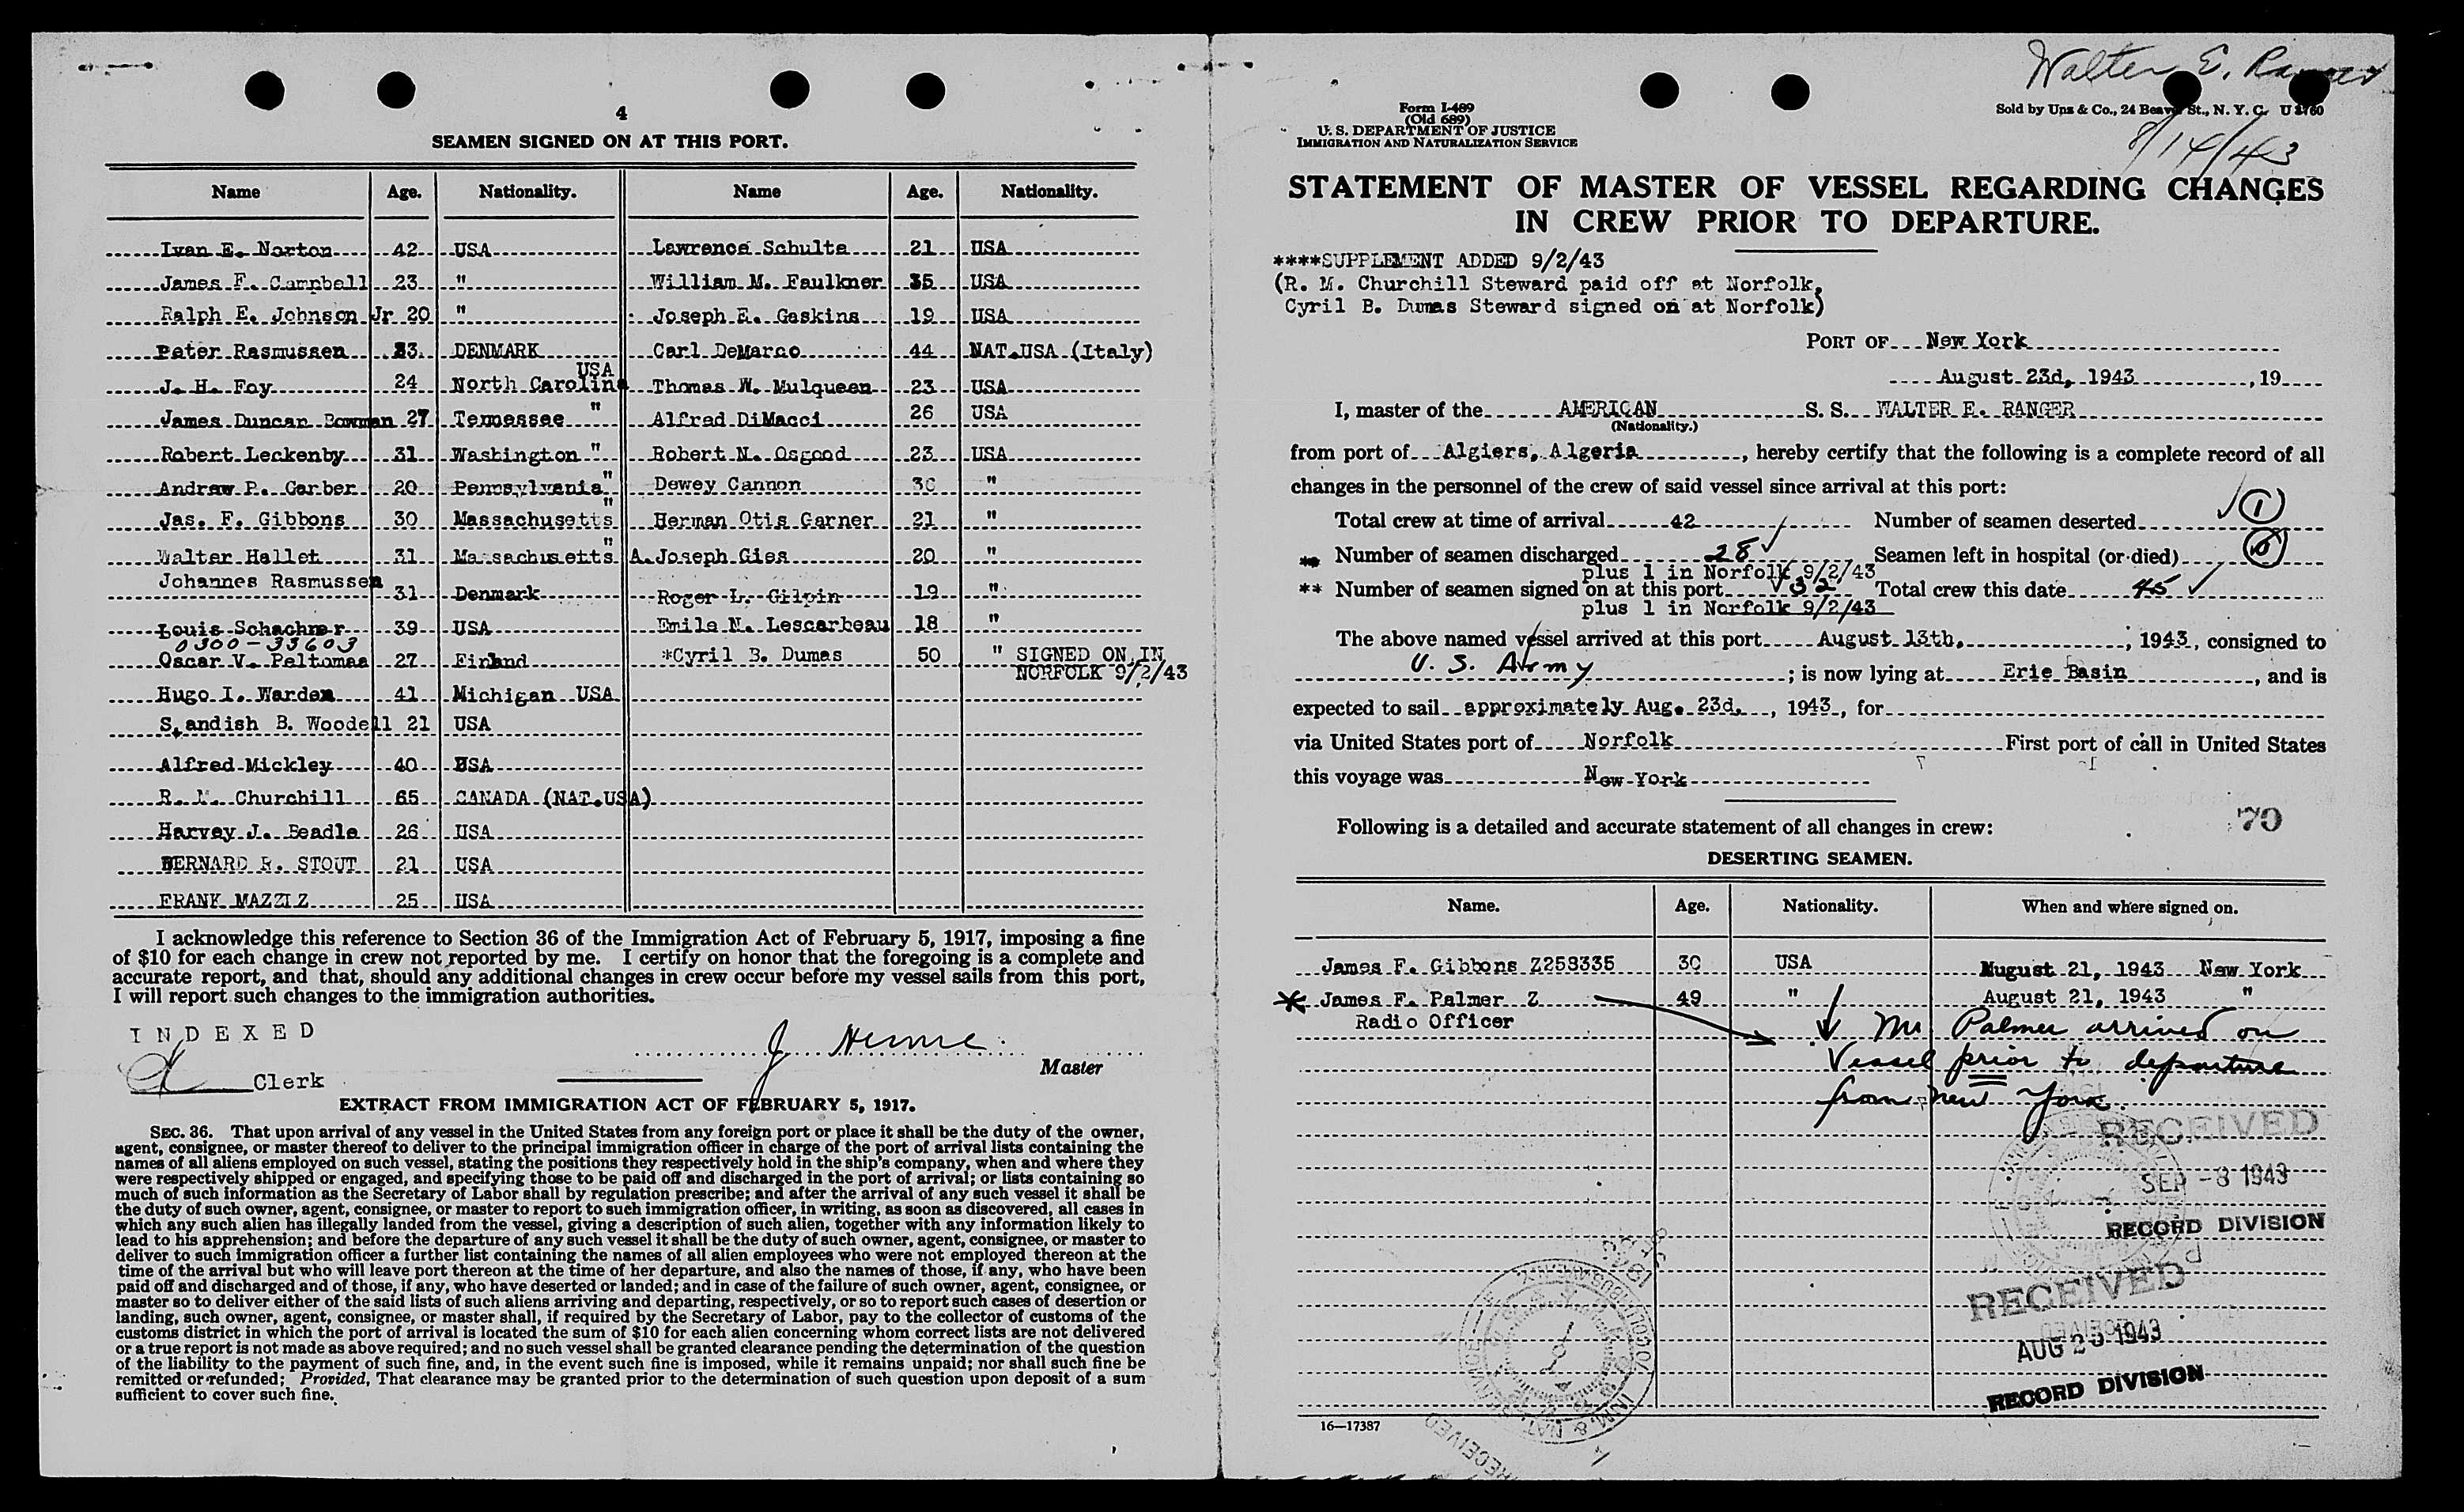 4
SEAMEN SIGNED ON AT THIS PORT.
Name Age. Nationality. Name Age. Nationality.
Ivan E. Norton 42 USA Lawrence Schulte 21 USA
James F. Campbell 23 " William M. Faulkner 35 USA
Ralph E. Johnson Jr 20 " Joseph E. Gaskins 19 USA
Peter Rasmussen 33 DENMARK Carl DeMarco 44 NAT.USA (Italy)
J. H. Foy 24 North Carolina USA Thomas W. Mulqueen 23 USA
James Duncan Bowman 27 Tennessee " Alfred DiMacci 26 USA
Robert Leckenby 31 Washington " Robert N. Osgood 23 USA
Andrew P. Garber 20 Pennsylvania " Dewey Cannon 30 "
Jas. F. Gibbons 30 Massachusetts " Herman Otis Garner 21 "
Walter Hallet 31 Massachusetts " A. Joseph Gies 20 "
Johannes Rasmussen 31 Denmark Roger L. Gilpin 19 "
Louis Schachner 39 USA Emile N. Lescarbeau 18 "
0300-33603
Oscar V. Peltomaa 27 Finland *Cyril B. Dumas 50 " SIGNED ON IN
NORFOLK 9/2/43
Hugo I. Warden 41 Michigan USA
Standish B. Woodell 21 USA
Alfred Mickley 40 USA
R. M. Churchill 65 CANADA (NAT.USA)
Harvey J. Beadle 26 USA
BERNARD R. STOUT 21 USA
FRANK MAZZIZ 25 USA
I acknowledge this reference to Section 36 of the Immigration Act of February 5, 1917, imposing a fine
of $10 for each change in crew not reported by me. I certify on honor that the foregoing is a complete and
accurate report, and that, should any additional changes in crew occur before my vessel sails from this port,
I will report such changes to the immigration authorities.
INDEXED
Clerk
J
Master
EXTRACT FROM IMMIGRATION ACT OF FEBRUARY 5, 1917.
SEC. 36. That upon arrival of any vessel in the United States from any foreign port or place it shall be the duty of the owner,
agent, consignee, or master thereof to deliver to the principal immigration officer in charge of the port of arrival lists containing the
names of all aliens employed on such vessel, stating the positions they respectively hold in the ship's company, when and where they
were respectively shipped or engaged, and specifying those to be paid off and discharged in the port of arrival; or lists containing so
much of such information as the Secretary of Labor shall by regulation prescribe; and after the arrival of any such vessel it shall be
the duty of such owner, agent, consignee, or master to report to such immigration officer, in writing, as soon as discovered, all cases in
which any such alien has illegally landed from the vessel, giving a description of such alien, together with any information likely to
lead to his apprehension; and before the departure of any such vessel it shall be the duty of such owner, agent, consignee, or master to
deliver to such immigration officer a further list containing the names of all alien employees who were not employed thereon at the
time of the arrival but who will leave port thereon at the time of her departure, and also the names of those, if any, who have been
paid off and discharged and of those, if any, who have deserted or landed; and in case of the failure of such owner, agent, consignee, or
master so to deliver either of the said lists of such aliens arriving and departing, respectively, or so to report such cases of desertion or
landing, such owner, agent, consignee, or master shall, if required by the Secretary of Labor, pay to the collector of customs of the
customs district in which the port of arrival is located the sum of $10 for each alien concerning whom correct lists are not delivered
or a true report is not made as above required; and no such vessel shall be granted clearance pending the determination of the question
of the liability to the payment of such fine, and, in the event such fine is imposed, while it remains unpaid; nor shall such fine be
remitted or refunded; Provided, That clearance may be granted prior to the determination of such question upon deposit of a sum
sufficient to cover such fine.
Walter E. Ranger
Form I-489
(Old 689)
U. S. DEPARTMENT OF JUSTICE
IMMIGRATION AND NATURALIZATION SERVICE
Sold by Unz & Co., 24 Beaver St., N. Y. C.
8/14/43
STATEMENT OF MASTER OF VESSEL REGARDING CHANGES
IN CREW PRIOR TO DEPARTURE.
****SUPPLEMENT ADDED 9/2/43
(R. M. Churchill Steward paid off at Norfolk,
Cyril B. Dumas Steward signed on at Norfolk)
PORT OF New York
August 23d, 1943, 19
I, master of the AMERICAN S. S. WALTER E. RANGER
(Nationality.)
from port of Algiers, Algeria, hereby certify that the following is a complete record of all
changes in the personnel of the crew of said vessel since arrival at this port:
Total crew at time of arrival 42 Number of seamen deserted 1
** Number of seamen discharged 28 Seamen left in hospital (or died) 0
plus 1 in Norfolk 9/2/43
** Number of seamen signed on at this port 32 Total crew this date 45
plus 1 in Norfolk 9/2/43
The above named vessel arrived at this port August 13th, 1943, consigned to
U. S. Army; is now lying at Erie Basin, and is
expected to sail approximately Aug. 23d., 1943, for
via United States port of Norfolk First port of call in United States
this voyage was New York
70
Following is a detailed and accurate statement of all changes in crew:
DESERTING SEAMEN.
Name. Age. Nationality. When and where signed on.
James F. Gibbons Z258335 30 USA August 21, 1943 New York
* James F. Palmer Z 49 " August 21, 1943 "
Radio Officer
Mr Palmer arrived on
Vessel prior to departure
from New York.
RECEIVED
SEP -8 1943
RECORD DIVISION
RECEIVED
AUG 25 1943
RECORD DIVISION
RECEIVED
16—17387